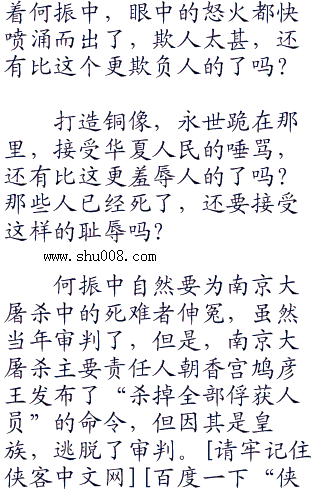 着何振中，眼中的怒火都快
喷涌而出了，欺人太甚，还
有比这个更欺负人的了吗？
打造铜像，永世跪在那
里，接受华夏人民的唾骂，
还有比这更羞辱人的了吗？
那些人已经死了，还要接受
这样的耻辱吗？
www.shu008.com
何振中自然要为南京大
屠杀中的死难者伸冤，虽然
当年审判了，但是，南京大
屠杀主要责任人朝香宫鸠彦
王发布了“杀掉全部俘获人
员”的命令，但因其是皇
族，逃脱了审判。[请牢记住
侠客中文网][百度一下“侠